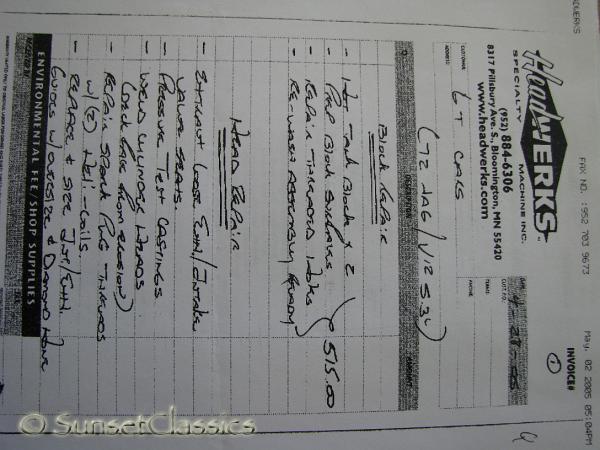 HEADWERKS FAX NO. :952 703 9673 May. 02 2005 05:04PM
INVOICE#
①
HeadWERKS
SPECIALTY MACHINE INC.
(952) 884-6306
8317 Pillsbury Ave. S., Bloomington, MN 55420
www.headwerks.com
DATE 4-28-05
CUST. P.O.
TERMS
PHONE
CUSTOMER GT CARS
ADDRESS
('72 JAG/V12 5.3L)
DESCRIPTION AMOUNT
Block Repair
- Hot Tank Block x 2
- Prep Block Surfaces
- Repair Threaded Holes
- Re-wash Assembly Ready
@ 515.00
HEAD REPAIR
- Extract Loose Exh./Intake
VALVE SEATS.
- PRESSURE TEST CASTINGS.
- WELD CYLINDER HEADS
- REPAIR SPARK PLUG THREADS
W/(2) Heli-Coils.
- REPLACE & SIZE INT/EXH.
GUIDES W/OVERSIZE & DIAMOND HONE
ENVIRONMENTAL FEE/SHOP SUPPLIES
© SunsetClassics